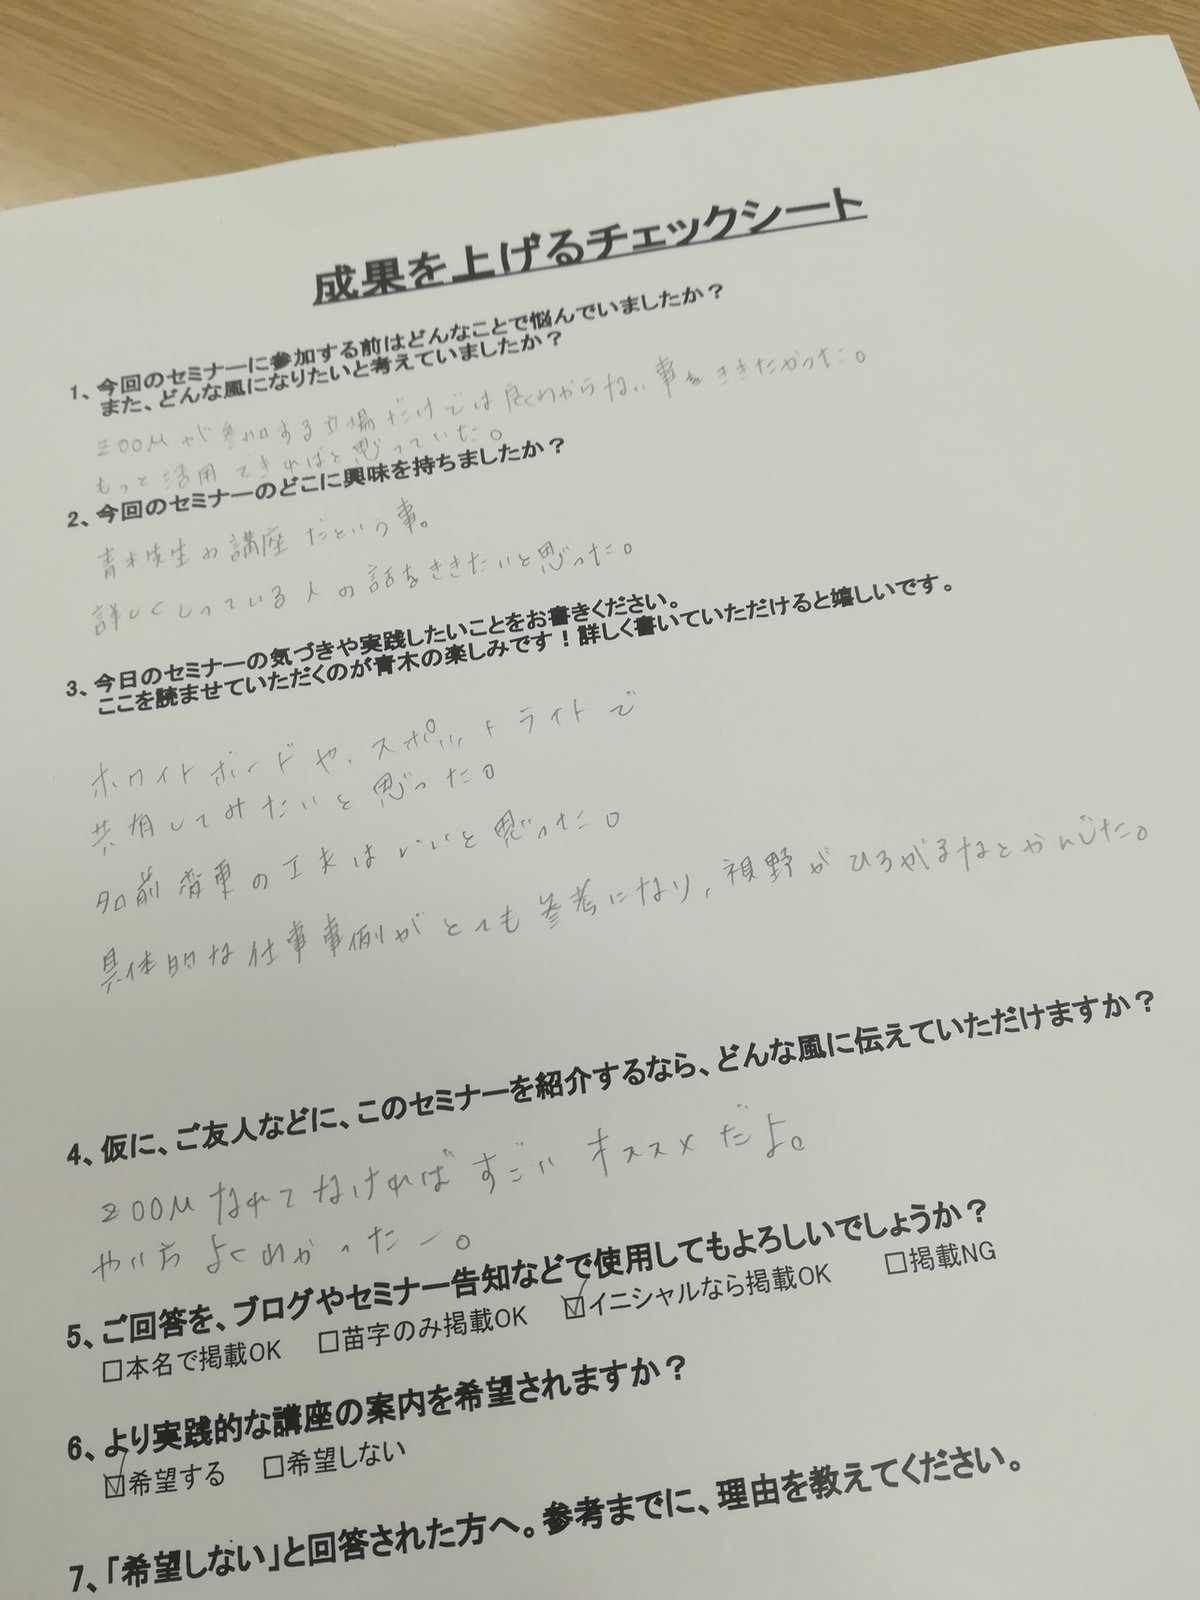 成果を上げるチェックシート
1、今回のセミナーに参加する前はどんなことで悩んでいましたか？
また、どんな風になりたいと考えていましたか？
ZOOMが参加する立場だけでは良くわからない事をききたかった。
もっと活用できればと思っていた。
2、今回のセミナーのどこに興味を持ちましたか？
青木先生の講座だという事。
詳しくしっている人の話をききたいと思った。
3、今日のセミナーの気づきや実践したいことをお書きください。
ここを読ませていただくのが青木の楽しみです！詳しく書いていただけると嬉しいです。
ホワイトボードや、スポットライトで
共有してみたいと思った。
名前変更の工夫はいいと思った。
具体的な仕事事例がとても参考になり、視野がひろがるなとかんじた。
4、仮に、ご友人などに、このセミナーを紹介するなら、どんな風に伝えていただけますか？
ZOOMなれてなければすごいオススメだよ。
やり方よくわかったー。
5、ご回答を、ブログやセミナー告知などで使用してもよろしいでしょうか？
□本名で掲載OK □苗字のみ掲載OK ☑イニシャルなら掲載OK □掲載NG
6、より実践的な講座の案内を希望されますか？
☑希望する □希望しない
7、「希望しない」と回答された方へ。参考までに、理由を教えてください。